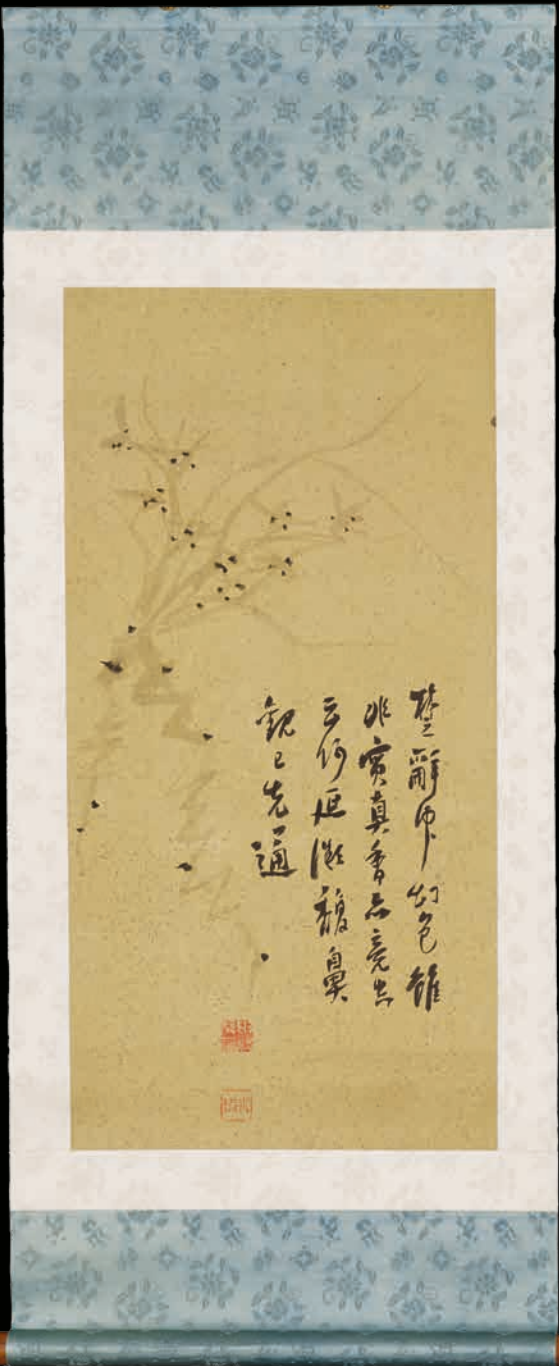 楚辭中幻色雖
非實真香亦竟空
云何起微馥鼻
觀已先通